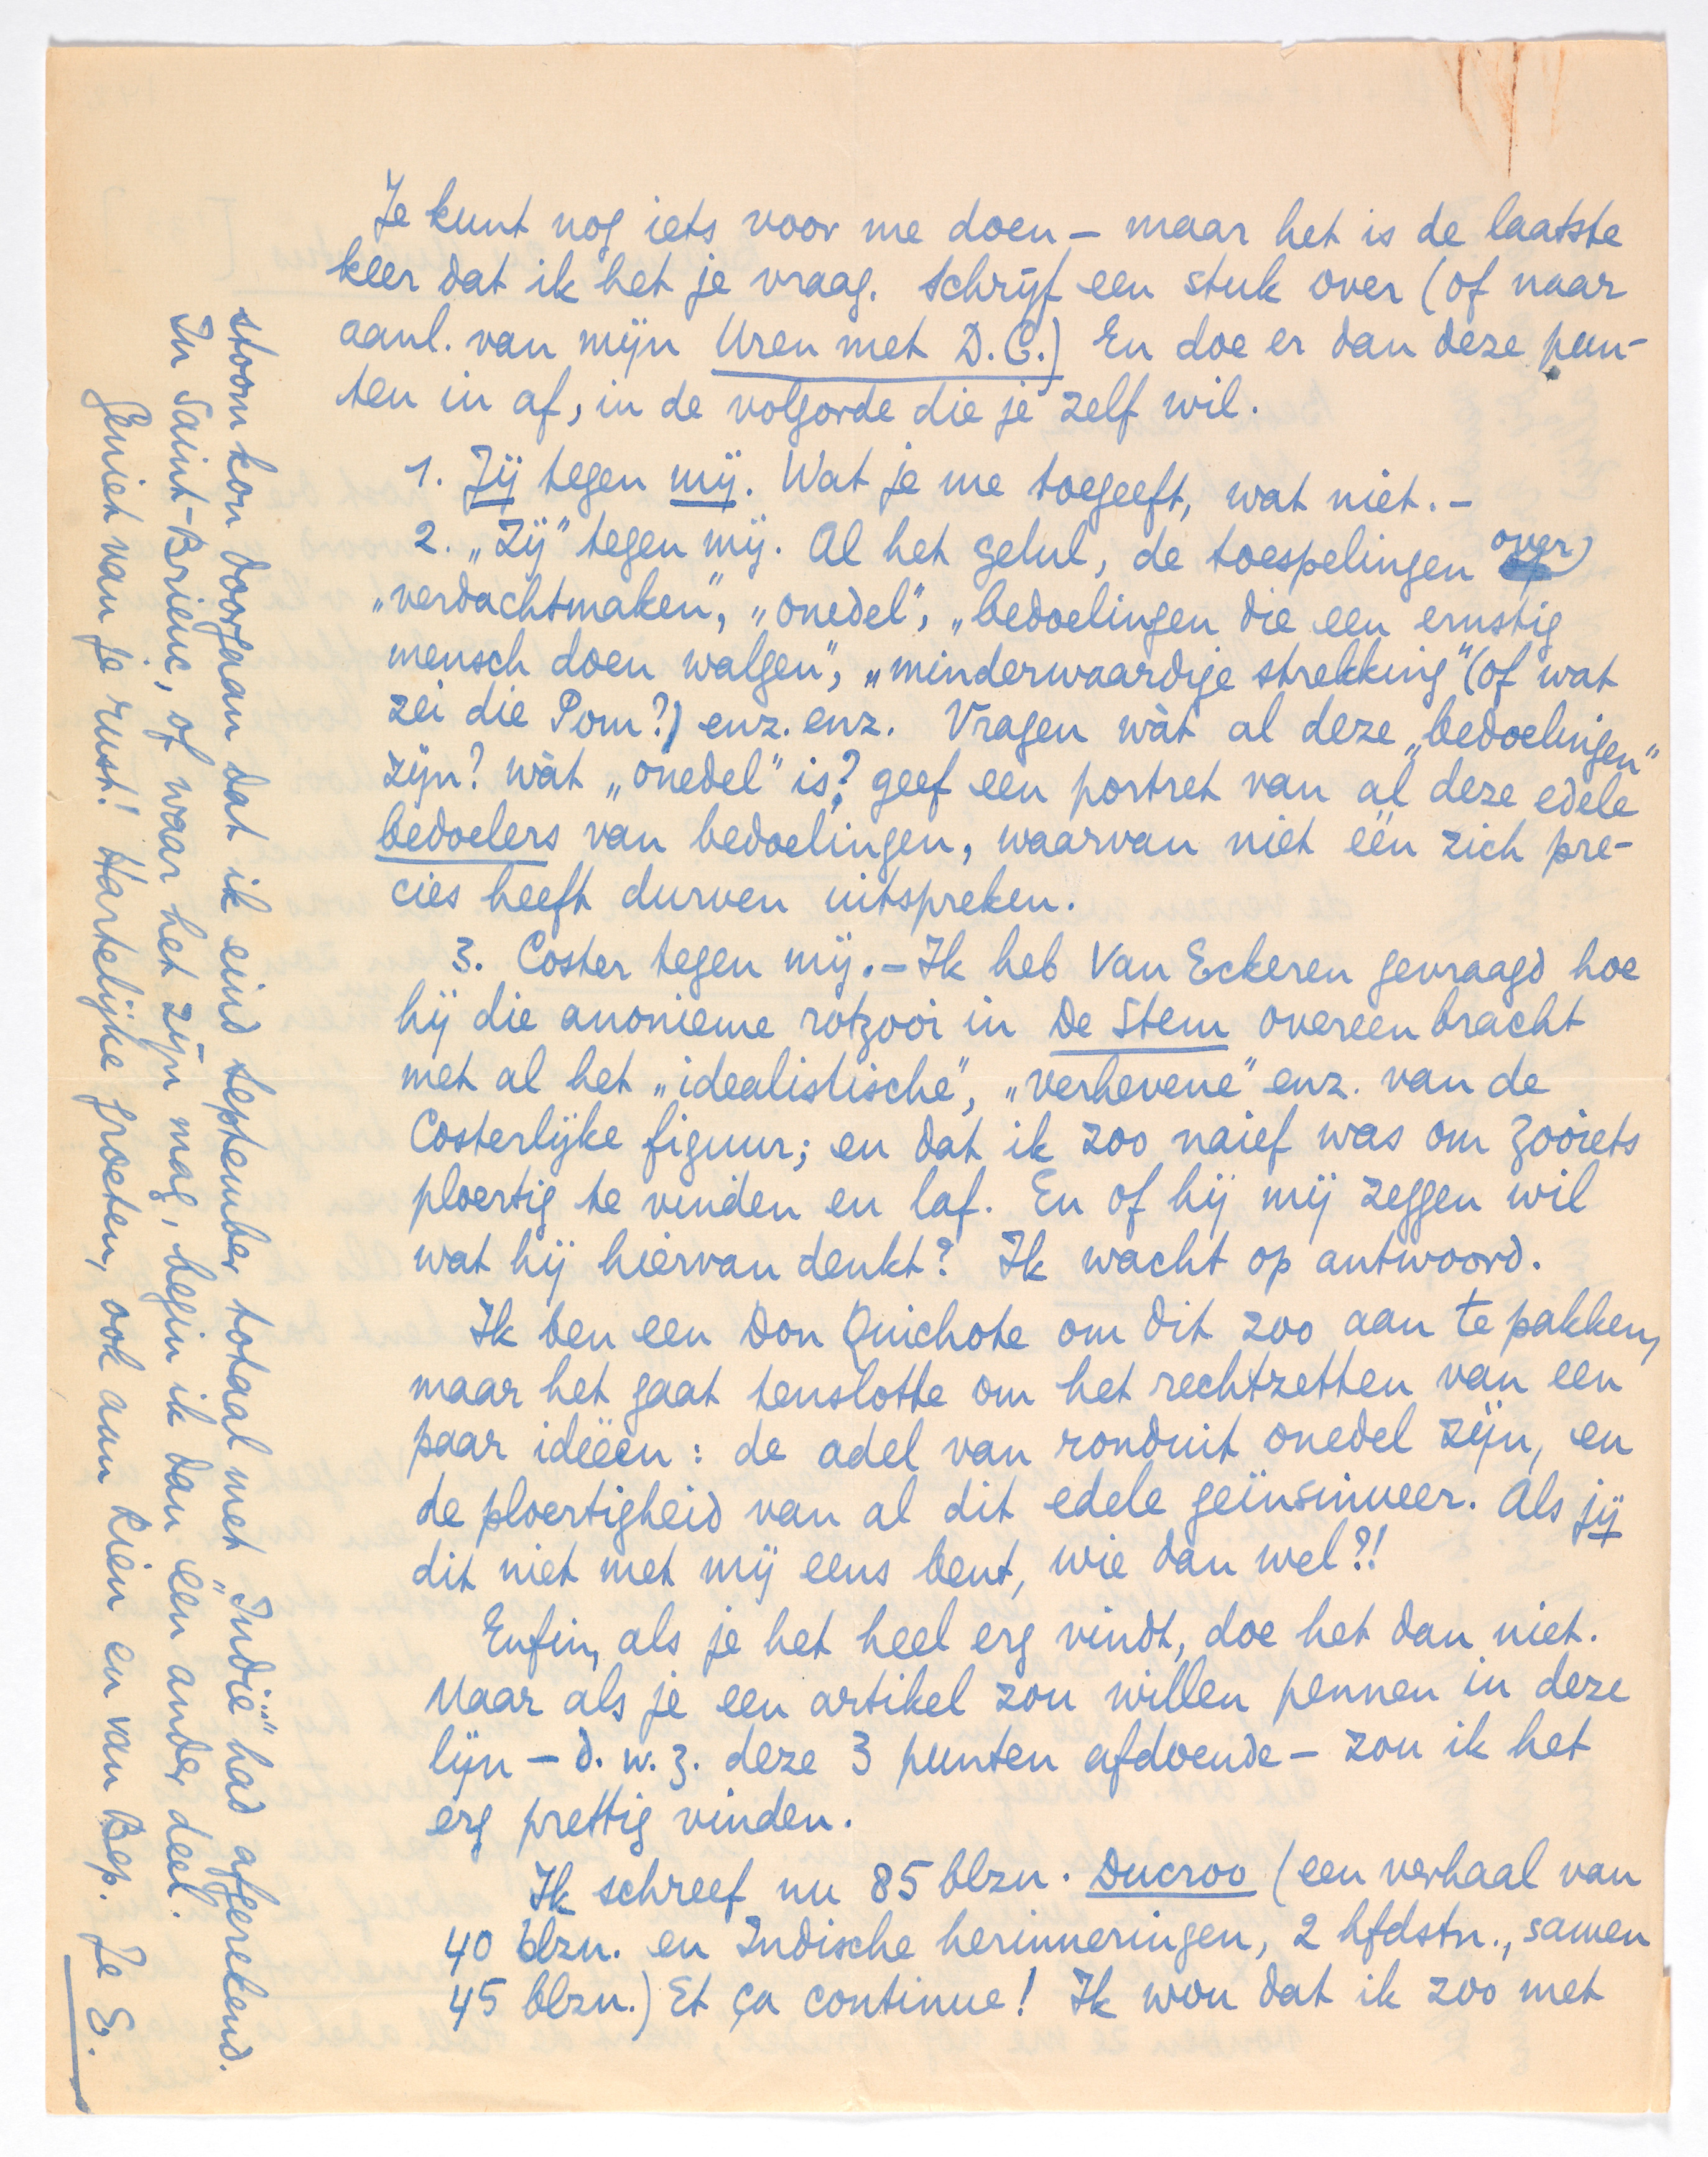 Je kunt nog iets voor me doen – maar het is de laatste
keer dat ik het je vraag. Schrijf een stuk over (of naar
aanl. van mijn Uren met D.C.) En doe er dan deze pun-
ten in af, in de volgorde die je zelf wil.
1. Jij tegen mij. Wat je me toegeeft, wat niet. –
2. „Zij” tegen mij. Al het gelul, de toespelingen over
„verdachtmaken”, „onedel”, „bedoelingen die een ernstig
mensch doen walgen”, „minderwaardige strekking” (of wat
zei die Pom?) enz. enz. Vragen wàt al deze „bedoelingen”
zijn? wàt „onedel” is? geef een portret van al deze edele
bedoelers van bedoelingen, waarvan niet één zich pre-
cies heeft durven uitspreken.
3. Coster tegen mij. – Ik heb Van Eckeren gevraagd hoe
hij die anonieme rotzooi in De Stem overeen bracht
met al het „idealistische”, „verhevene” enz. van de
Costerlijke figuur; en dat ik zoo naief was om zooiets
ploertig te vinden en laf. En of hij mij zeggen wil
wat hij hiervan denkt? Ik wacht op antwoord.
Ik ben een Don Quichote om dit zoo aan te pakken,
maar het gaat tenslotte om het rechtzetten van een
paar ideëen: de adel van ronduit onedel zijn, en
de ploertigheid van al dit edele geïnsinueer. Als jij
dit niet met mij eens bent, wie dan wel?!
Enfin, als je het heel erg vindt, doe het dan niet.
Maar als je een artikel zou willen pennen in deze
lijn – d.w.z. deze 3 punten afdoende – zou ik het
erg prettig vinden.
Ik schreef nu 85 blzn. Ducroo (een verhaal van
40 blzn. en Indische herinneringen, 2 hfdstn., samen
45 blzn.) Et ça continue! Ik wou dat ik zoo met
stoom kon doorgaan dat ik eind september totaal met „Indië” had afgerekend.
In Saint-Brieuc, of waar het zijn mag, begin ik dan een ander deel.
Geniet van je rust! Hartelijke groeten, ook aan Rien en van Bep. Je E.